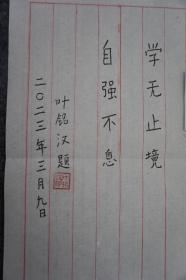 学无止境
自强不息
叶铭汉题
二〇二三年三月九日